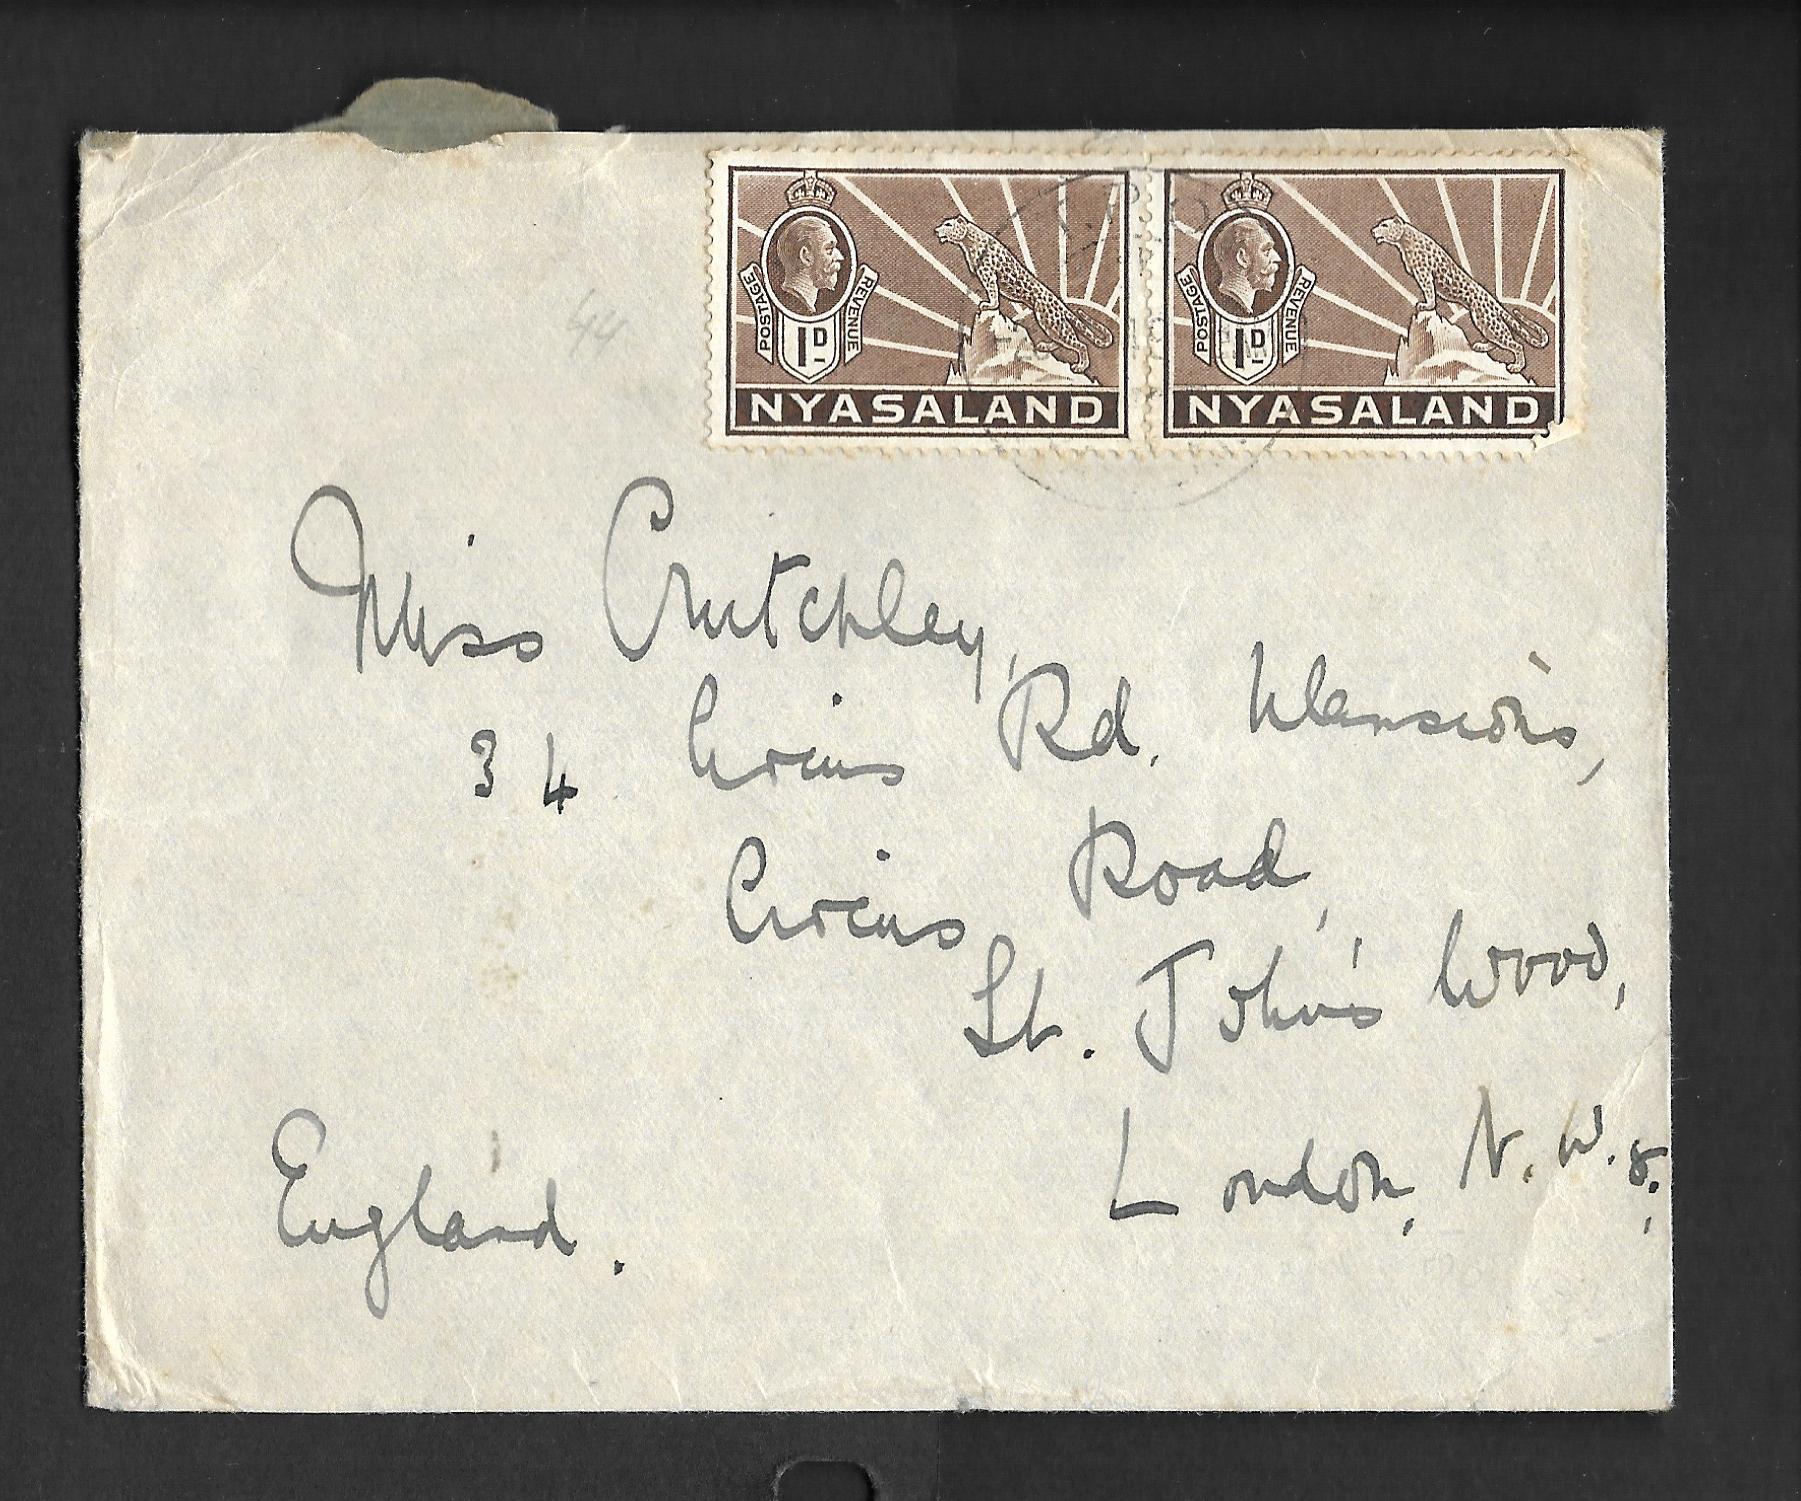 POSTAGE REVENUE
1D
NYASALAND
POSTAGE REVENUE
1D
NYASALAND
44
Miss Crutchley,
34 Circus Rd. Mansions,
Circus Road,
St. John's Wood,
London, N.W.8.
England.